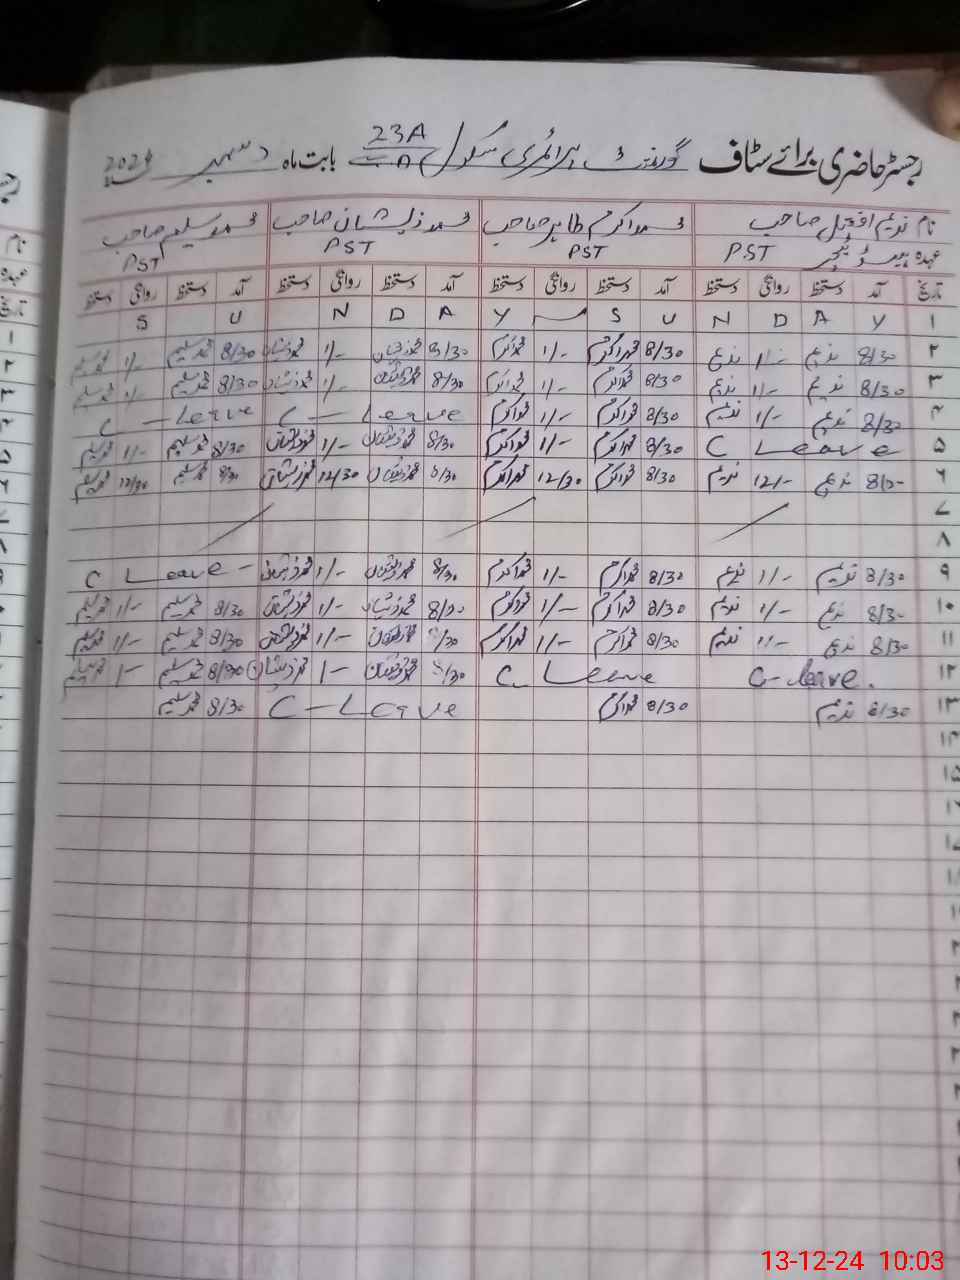 رجسٹر حاضری برائے سٹاف گورنمنٹ پرائمری سکول 23A بابت ماہ دسمبر 2024
نام ندیم افضل صاحب محمد اکرم طاہر صاحب محمد ذیشان صاحب محمد سلیم صاحب
عہدہ ہیڈ ٹیچر PST PST PST PST
تاریخ آمد دستخط روانگی دستخط آمد دستخط روانگی دستخط آمد دستخط روانگی دستخط آمد دستخط روانگی دستخط
۱ Y A D N U S Y A D N U S
۲ 8/30 ندیم 1/- ندیم 8/30 محمد اکرم 1/- محمد اکرم 8/30 محمد ذیشان 1/- محمد ذیشان 8/30 محمد سلیم 1/- محمد سلیم
۳ 8/30 ندیم 1/- ندیم 8/30 محمد اکرم 1/- محمد اکرم 8/30 محمد ذیشان 1/- محمد ذیشان 8/30 محمد سلیم 1/- محمد سلیم
۴ 8/30 ندیم 1/- ندیم 8/30 محمد اکرم 1/- محمد اکرم C - Leave C - Leave
۵ C Leave 8/30 محمد اکرم 1/- محمد اکرم 8/30 محمد ذیشان 1/- محمد ذیشان 8/30 محمد سلیم 1/- محمد سلیم
۶ ندیم 12/- ندیم 8/30 محمد اکرم 12/30 محمد اکرم 8/30 محمد ذیشان 12/30 محمد ذیشان 8/30 محمد سلیم 12/30 محمد سلیم
۷
۸
۹ 8/30 ندیم 1/- ندیم 8/30 محمد اکرم 1/- محمد اکرم 8/30 محمد ذیشان 1/- محمد ذیشان C Leave -
۱۰ 8/30 ندیم 1/- ندیم 8/30 محمد اکرم 1/- محمد اکرم 8/30 محمد ذیشان 1/- محمد ذیشان 8/30 محمد سلیم 1/- محمد سلیم
۱۱ 8/30 ندیم 1/- ندیم 8/30 محمد اکرم 1/- محمد اکرم 8/30 محمد ذیشان 1/- محمد ذیشان 8/30 محمد سلیم 1/- محمد سلیم
۱۲ C-leave. C Leave 8/30 محمد ذیشان 1/- محمد ذیشان 8/30 محمد سلیم 1/- محمد سلیم
۱۳ 8/30 ندیم 8/30 محمد اکرم C-Leave 8/30 محمد سلیم
۱۴
۱۵
13-12-24 10:03